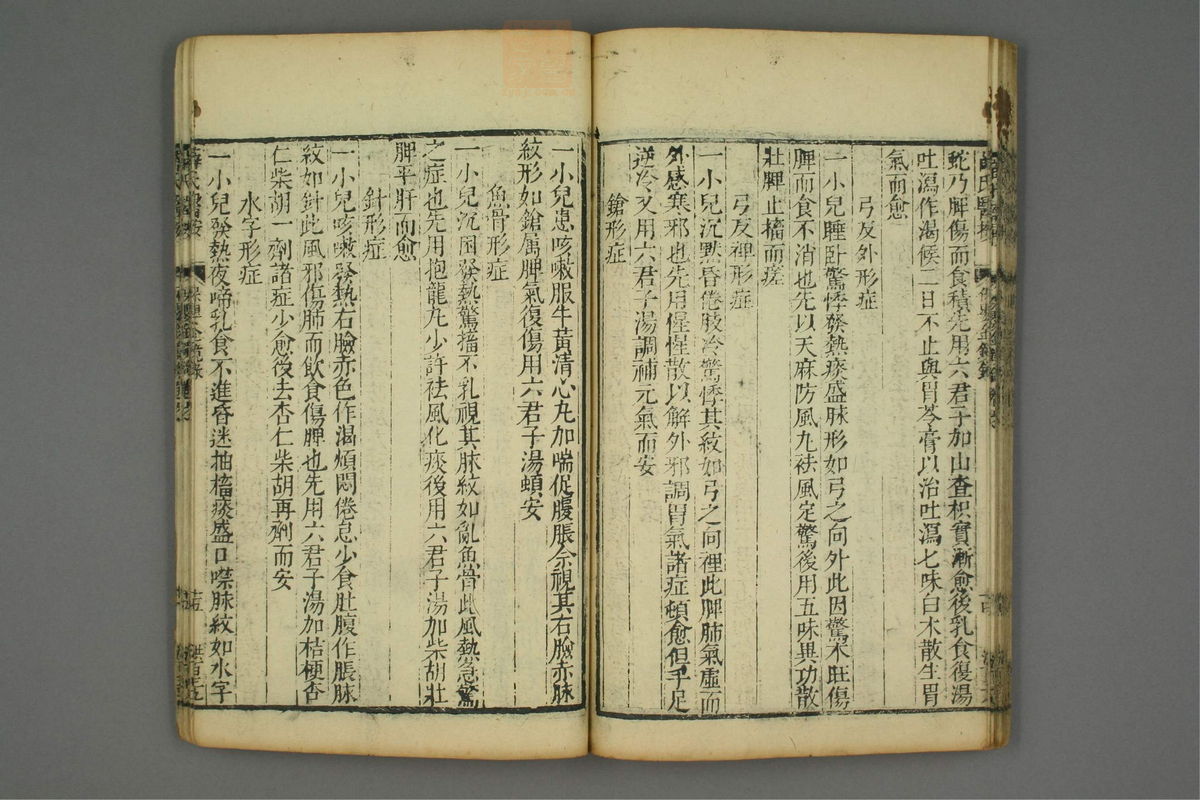 蛇乃脾傷而食積先用六君子加山查枳實漸愈後乳食復湯
吐瀉作渴候二日不止與胃苓膏以治吐瀉七味白木散生胃
氣而愈
弓反外形症
一小兒睡卧驚悸發熱痰盛脉形如弓之向外此因驚木旺傷
脾而食不消也先以天麻防風丸袪風定驚後用五味異功散
壯脾止搐而瘥
弓反裡形症
一小兒沉默昏倦肢冷驚悸其紋如弓之向裡此脾肺氣虛而
外感寒邪也先用惺惺散以解外邪調胃氣諸症頓愈但手足
逆冷又用六君子湯調補元氣而安
鎗形症
一小兒患咳嗽服牛黃清心丸加喘促腹脹余視其右臉赤脉
紋形如鎗属脾氣復傷用六君子湯頓安
魚骨形症
一小兒沉困發熱驚搐不乳視其脉紋如亂魚骨此風熱急驚
之症也先用抱龍丸少許祛風化痰後用六君子湯加柴胡壯
脾平肝而愈
針形症
一小兒咳嗽發熱右臉赤色作渴煩悶倦怠少食肚腹作脹脉
紋如針此風邪傷肺而飲食傷脾也先用六君子湯加桔梗杏
仁柴胡一劑諸症少愈後去杏仁柴胡再劑而安
水字形症
一小兒發熱夜啼乳食不進昏迷抽搐痰盛口噤脉紋如水字
薛氏醫按